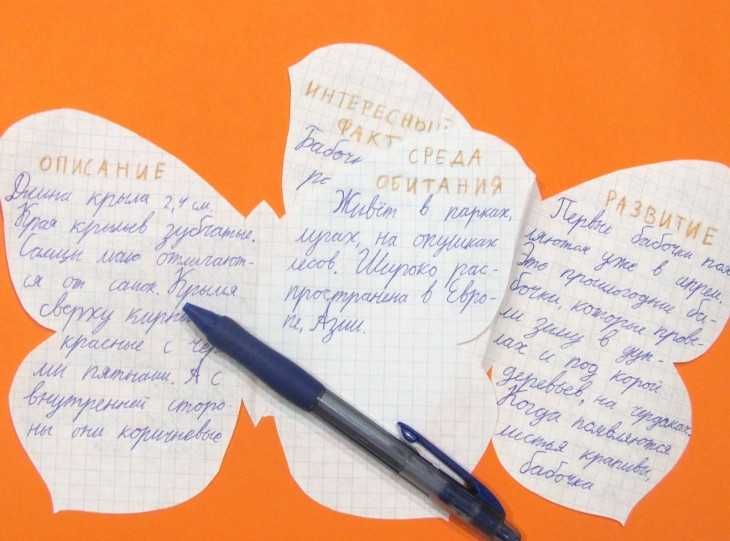 ОПИСАНИЕ
Длина крыла 2,4 см.
Края крыльев зубчатые.
Самцы мало отличают-
ся от самок. Крылья
сверху кирп
красные с чёр
ми пятнами. А с
внутренней сторо-
ны они коричневые
ИНТЕРЕСНЫ
ФАКТ
Бабоч
СРЕДА
ОБИТАНИЯ
Живёт в парках,
лугах, на опушках
лесов. Широко рас-
пространена в Евро-
пе, Азии.
РАЗВИТИЕ
Первые бабочки поя
ляются уже в апрел.
Это прошлогодние ба-
бочки, которые прове-
ли зиму в дуп-
лах и под корой
деревьев, на чердаках.
Когда появляются
листья крапивы,
бабочка